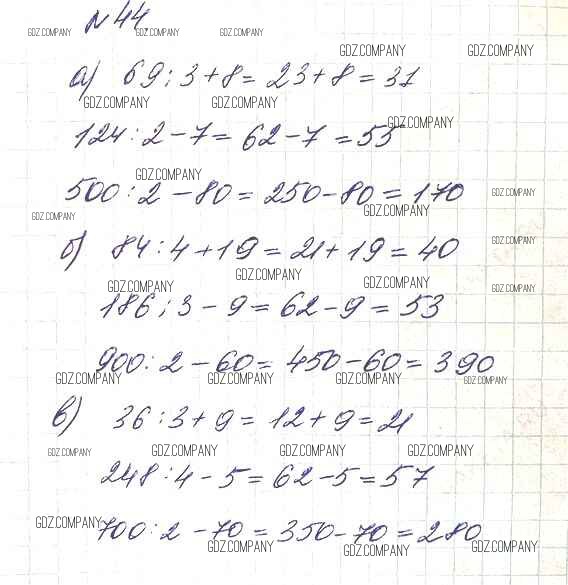 № 44
GDZ.COMPANY GDZ.COMPANY GDZ.COMPANY
GDZ.COMPANY GDZ.COMPANY
а) 69 : 3 + 8 = 23 + 8 = 31
GDZ.COMPANY GDZ.COMPANY
GDZ.COMPANY
124 : 2 - 7 = 62 - 7 = 55
GDZ.COMPANY
500 : 2 - 80 = 250 - 80 = 170
GDZ.COMPANY
GDZ.COMPANY GDZ.COMPANY
б) 84 : 4 + 19 = 21 + 19 = 40
GDZ.COMPANY
GDZ.COMPANY GDZ.COMPANY GDZ.COMPANY GDZ.COMPANY
186 : 3 - 9 = 62 - 9 = 53
900 : 2 - 60 = 450 - 60 = 390
GDZ.COMPANY GDZ.COMPANY GDZ.COMPANY GDZ.COMPANY
в) 36 : 3 + 9 = 12 + 9 = 21
GDZ.COMPANY GDZ.COMPANY GDZ.COMPANY GDZ.COMPANY
248 : 4 - 5 = 62 - 5 = 57
GDZ.COMPANY
700 : 2 - 70 = 350 - 70 = 280
GDZ.COMPANY GDZ.COMPANY GDZ.COMPANY